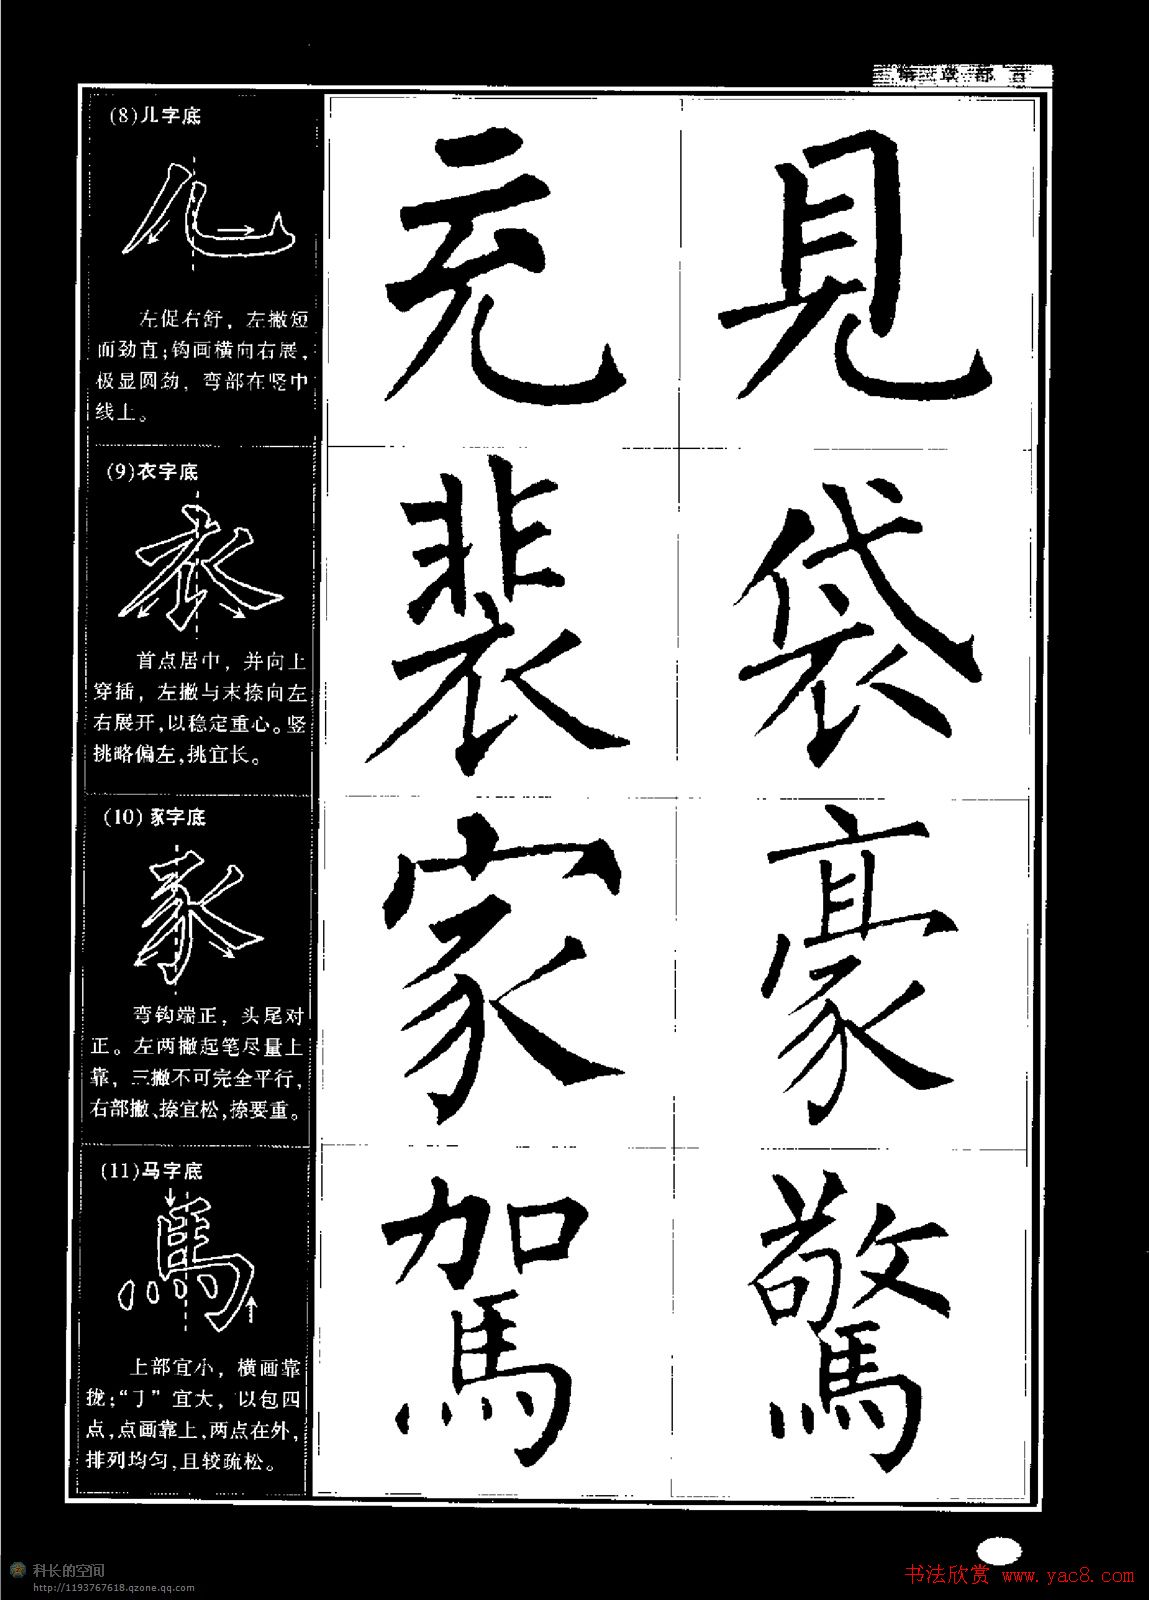 第三章 部首
(8)儿字底
左促右舒，左撇短
而劲直；钩画横向右展，
极显圆劲，弯部在竖中
线上。
充 見
(9)衣字底
首点居中，并向上
穿插，左撇与末捺向左
右展开，以稳定重心。竖
挑略偏左，挑宜长。
裴 袋
(10)豕字底
弯钩端正，头尾对
正。左两撇起笔尽量上
靠，三撇不可完全平行，
右部撇、捺宜松，捺要重。
家 豪
(11)马字底
上部宜小，横画靠
拢；“㇆”宜大，以包四
点，点画靠上，两点在外，
排列均匀，且较疏松。
駕 驚
科长的空间
http://1193767618.qzone.qq.com
书法欣赏 www.yac8.com